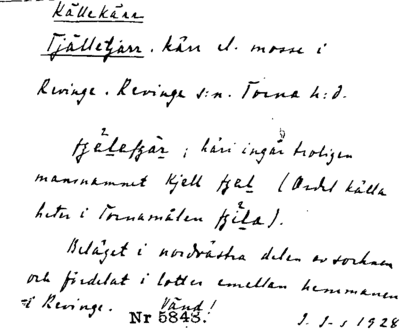 Källekärr
Tjälletjärr. Kärr el. mosse i
Revinge. Revinge s:n. Torna h:d.
fjälefjär; häri ingår troligen
mansnamnet Kjell fjel (Ordet källa
heter i Tornamålen fjila).
Beläget i nordvästra delen av socknen
och fördelat i lotter emellan hemmanen
i Revinge. Vänd!
Nr 5848. J. J-s 1928